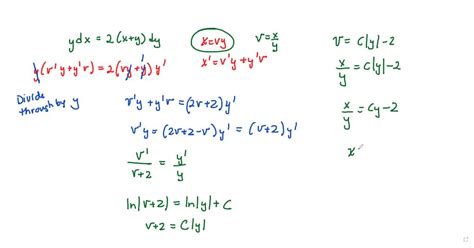 y dx = 2(x+y) dy
x = vy
v = x/y
x' = v'y + y'v
y(v'y + y'v) = 2(vy + y) y'
Divide
through by y
v'y + y'v = (2v+2) y'
v'y = (2v+2-v) y' = (v+2) y'
v'/v+2 = y'/y
ln|v+2| = ln|y| + C
v+2 = C|y|
v = C|y| - 2
x/y = C|y| - 2
x/y = Cy - 2
x